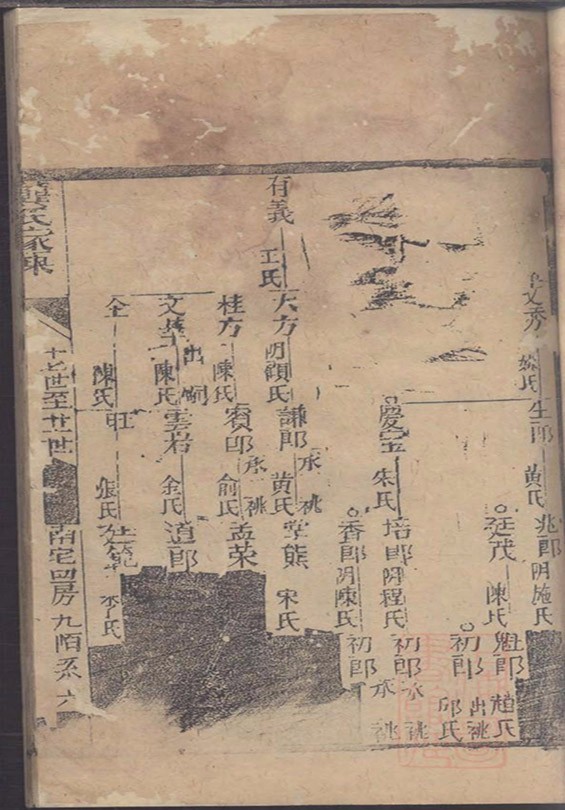 文秀
生郎
黄氏
兆郎
明施氏
廷茂
陳氏
魁郎
趙氏
出祧
初郎
邱氏
慶宝
朱氏
培郎
明程氏
初郎
承祧
香郎
明陳氏
初郎
承祧
有義
江氏
大方
明顔氏
謙郎
承祧
黄氏
掌熊
宋氏
桂方
陳氏
賓郎
承祧
俞氏
孟荣
文華
出嗣
陳氏
雲岩
余氏
道郎
全
陳氏
旺
張氏
廷範
李氏
龔氏家乘
十七世至廿一世
南宅四房九陌系
六